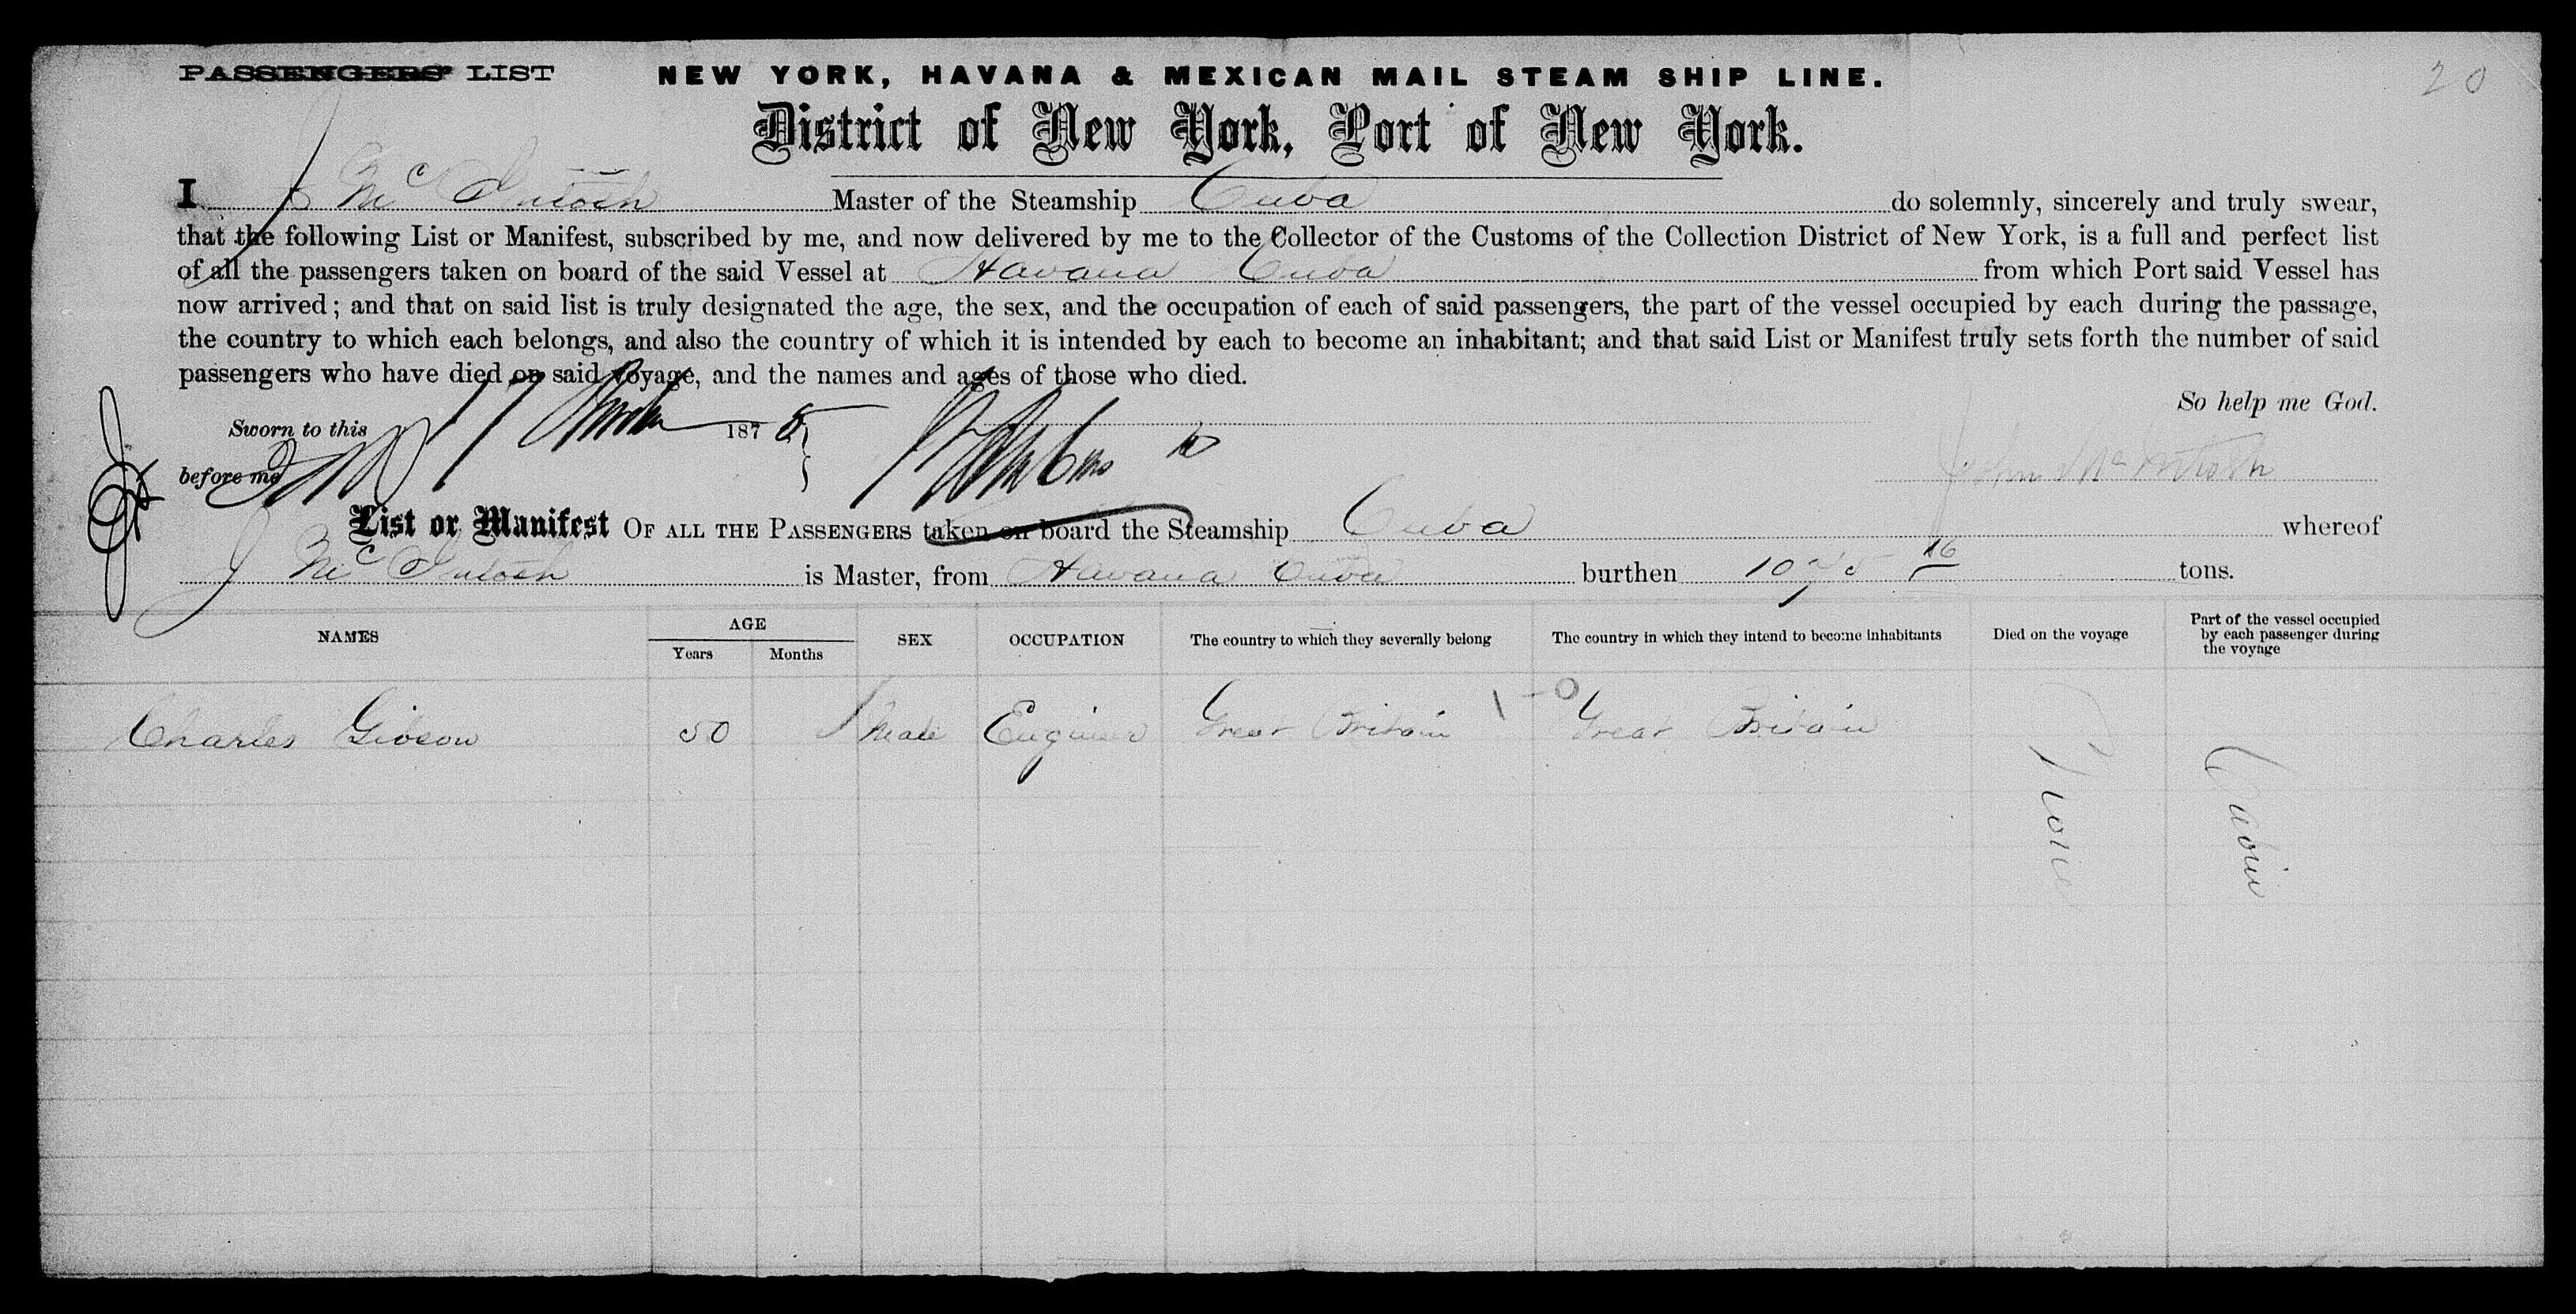 PASSENGERS' LIST NEW YORK, HAVANA & MEXICAN MAIL STEAM SHIP LINE. 20
District of New York, Port of New York.
I J McIntosh Master of the Steamship Cuba do solemnly, sincerely and truly swear,
that the following List or Manifest, subscribed by me, and now delivered by me to the Collector of the Customs of the Collection District of New York, is a full and perfect list
of all the passengers taken on board of the said Vessel at Havana Cuba from which Port said Vessel has
now arrived; and that on said list is truly designated the age, the sex, and the occupation of each of said passengers, the part of the vessel occupied by each during the passage,
the country to which each belongs, and also the country of which it is intended by each to become an inhabitant; and that said List or Manifest truly sets forth the number of said
passengers who have died on said voyage, and the names and ages of those who died.
So help me God.
Sworn to this 17 187
before me John McIntosh
List or Manifest OF ALL THE PASSENGERS taken on board the Steamship Cuba whereof
J McIntosh is Master, from Havana Cuba burthen tons.
NAMES AGE Years Months SEX OCCUPATION The country to which they severally belong The country in which they intend to become inhabitants Died on the voyage Part of the vessel occupied by each passenger during the voyage
Charles Gibson 50 Male Engineer Great Britain Great Britain None Cabin